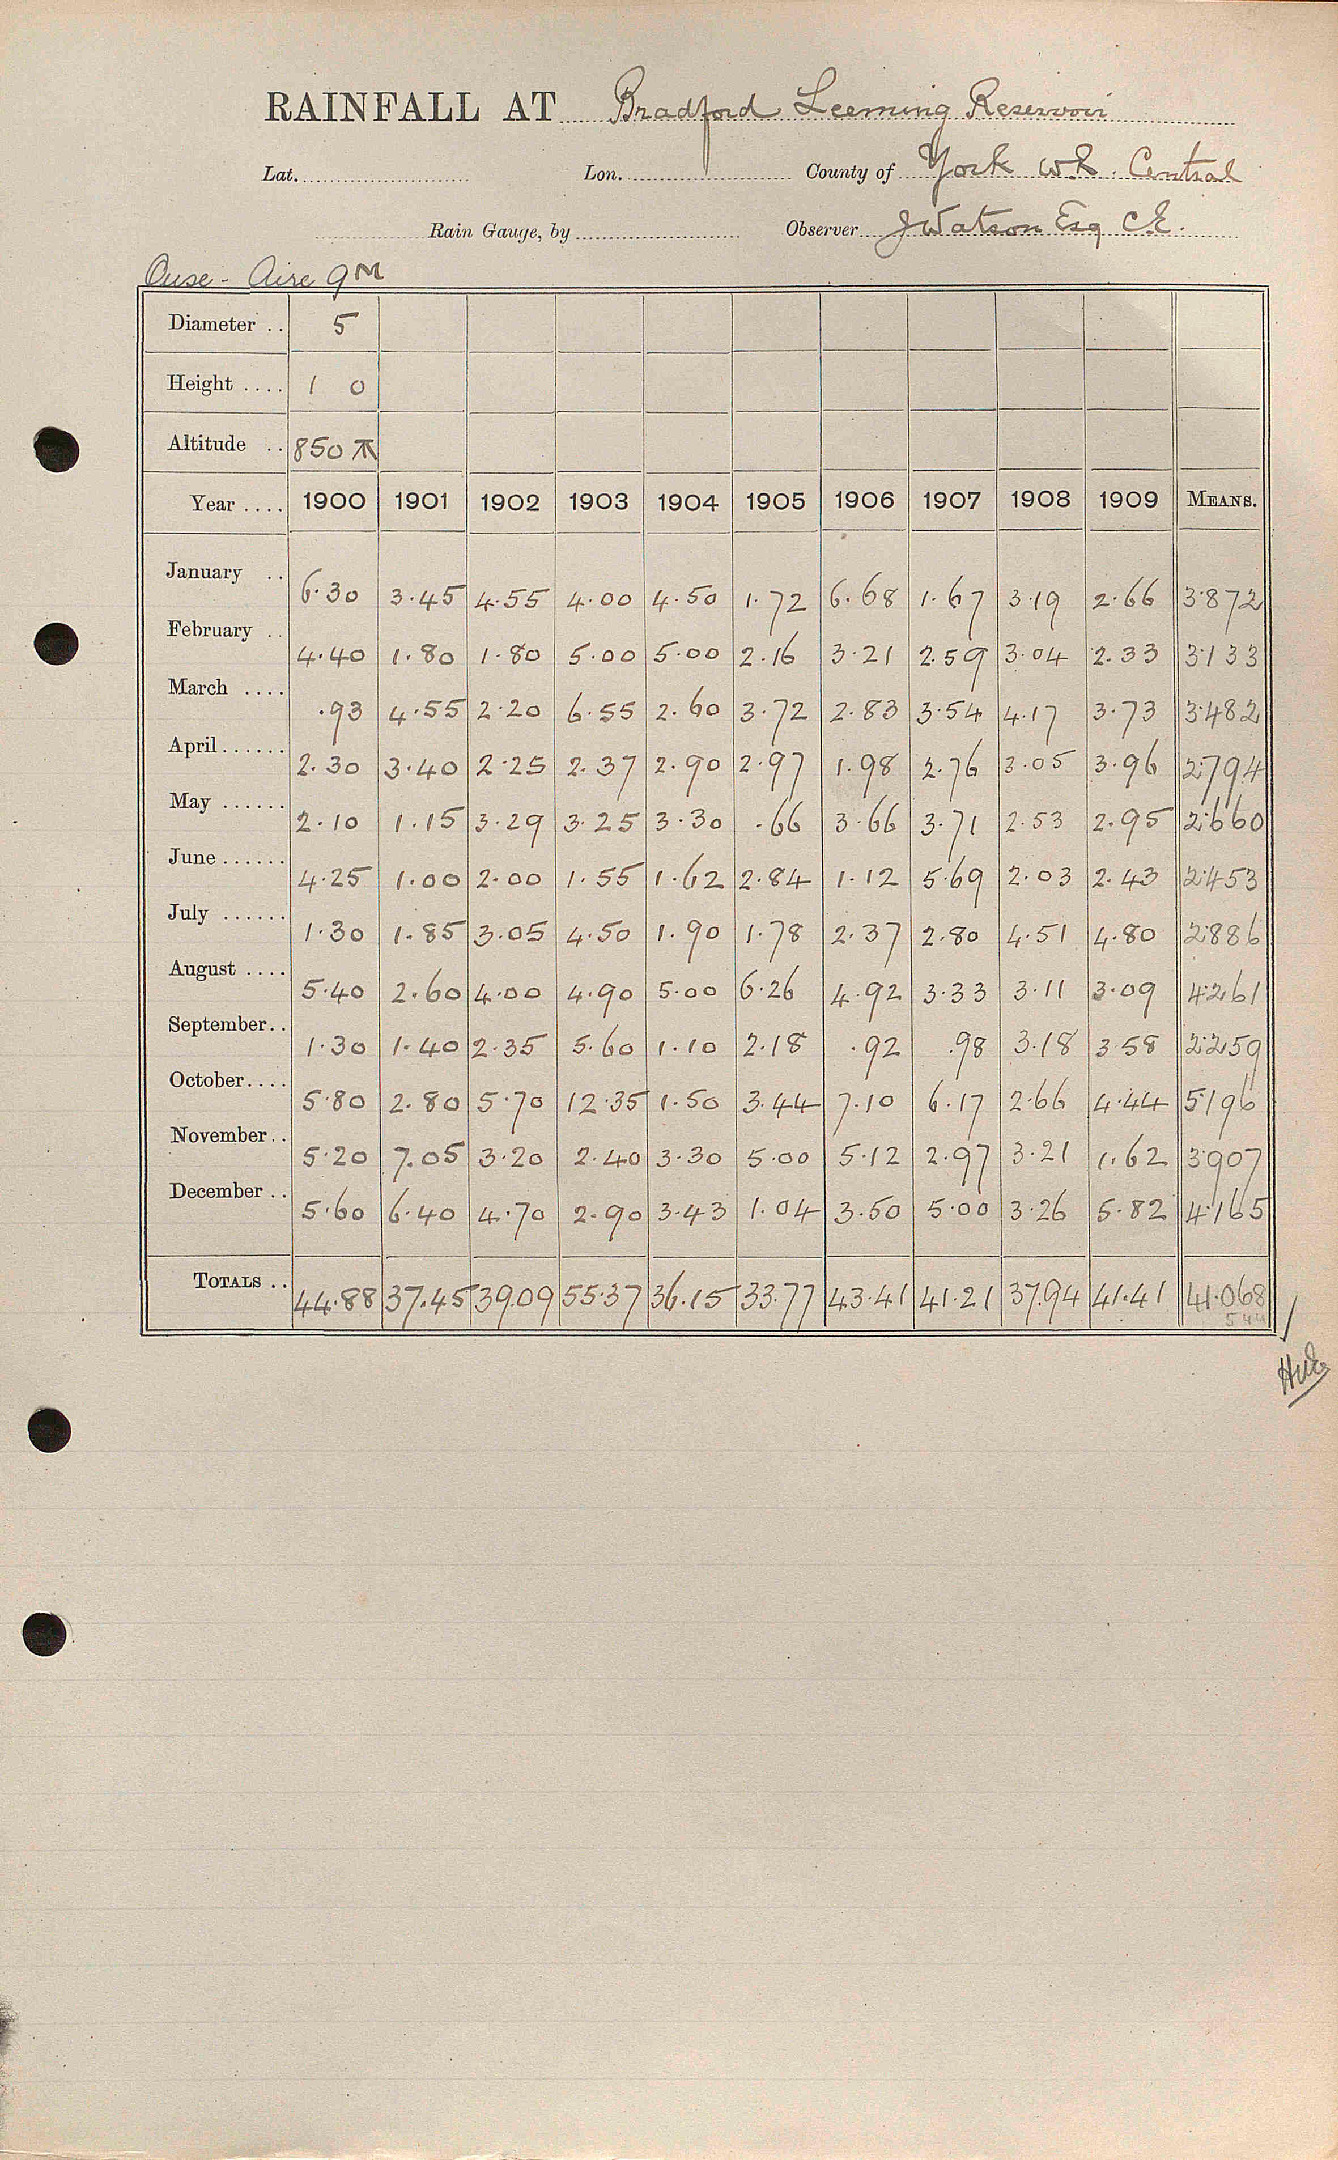 RAINFALL AT Bradford Leeming Reservoir
Lat. Lon. County of York W.R. Central
Rain Gauge, by Observer J Watson Esq C.E.
Ouse - Aire 9M
Diameter .. 5
Height .... 1 0
Altitude .. 850
Year .... 1900 1901 1902 1903 1904 1905 1906 1907 1908 1909 MEANS.
January .. 6.30 3.45 4.55 4.00 4.50 1.72 6.68 1.67 3.19 2.66 3.872
February .. 4.40 1.80 1.80 5.00 5.00 2.16 3.21 2.59 3.04 2.33 3.133
March .... .93 4.55 2.20 6.55 2.60 3.72 2.83 3.54 4.17 3.73 3.482
April ...... 2.30 3.40 2.25 2.37 2.90 2.97 1.98 2.76 3.05 3.96 2.794
May ...... 2.10 1.15 3.29 3.25 3.30 .66 3.66 3.71 2.53 2.95 2.660
June ...... 4.25 1.00 2.00 1.55 1.62 2.84 1.12 5.69 2.03 2.43 2.453
July ...... 1.30 1.85 3.05 4.50 1.90 1.78 2.37 2.80 4.51 4.80 2.886
August .... 5.40 2.60 4.00 4.90 5.00 6.26 4.92 3.33 3.11 3.09 4.261
September.. 1.30 1.40 2.35 5.60 1.10 2.18 .92 .98 3.18 3.58 2.259
October.... 5.80 2.80 5.70 12.35 1.50 3.44 7.10 6.17 2.66 4.44 5.196
November .. 5.20 7.05 3.20 2.40 3.30 5.00 5.12 2.97 3.21 1.62 3.907
December .. 5.60 6.40 4.70 2.90 3.43 1.04 3.50 5.00 3.26 5.82 4.165
TOTALS .. 44.88 37.45 39.09 55.37 36.15 33.77 43.41 41.21 37.94 41.41 41.068